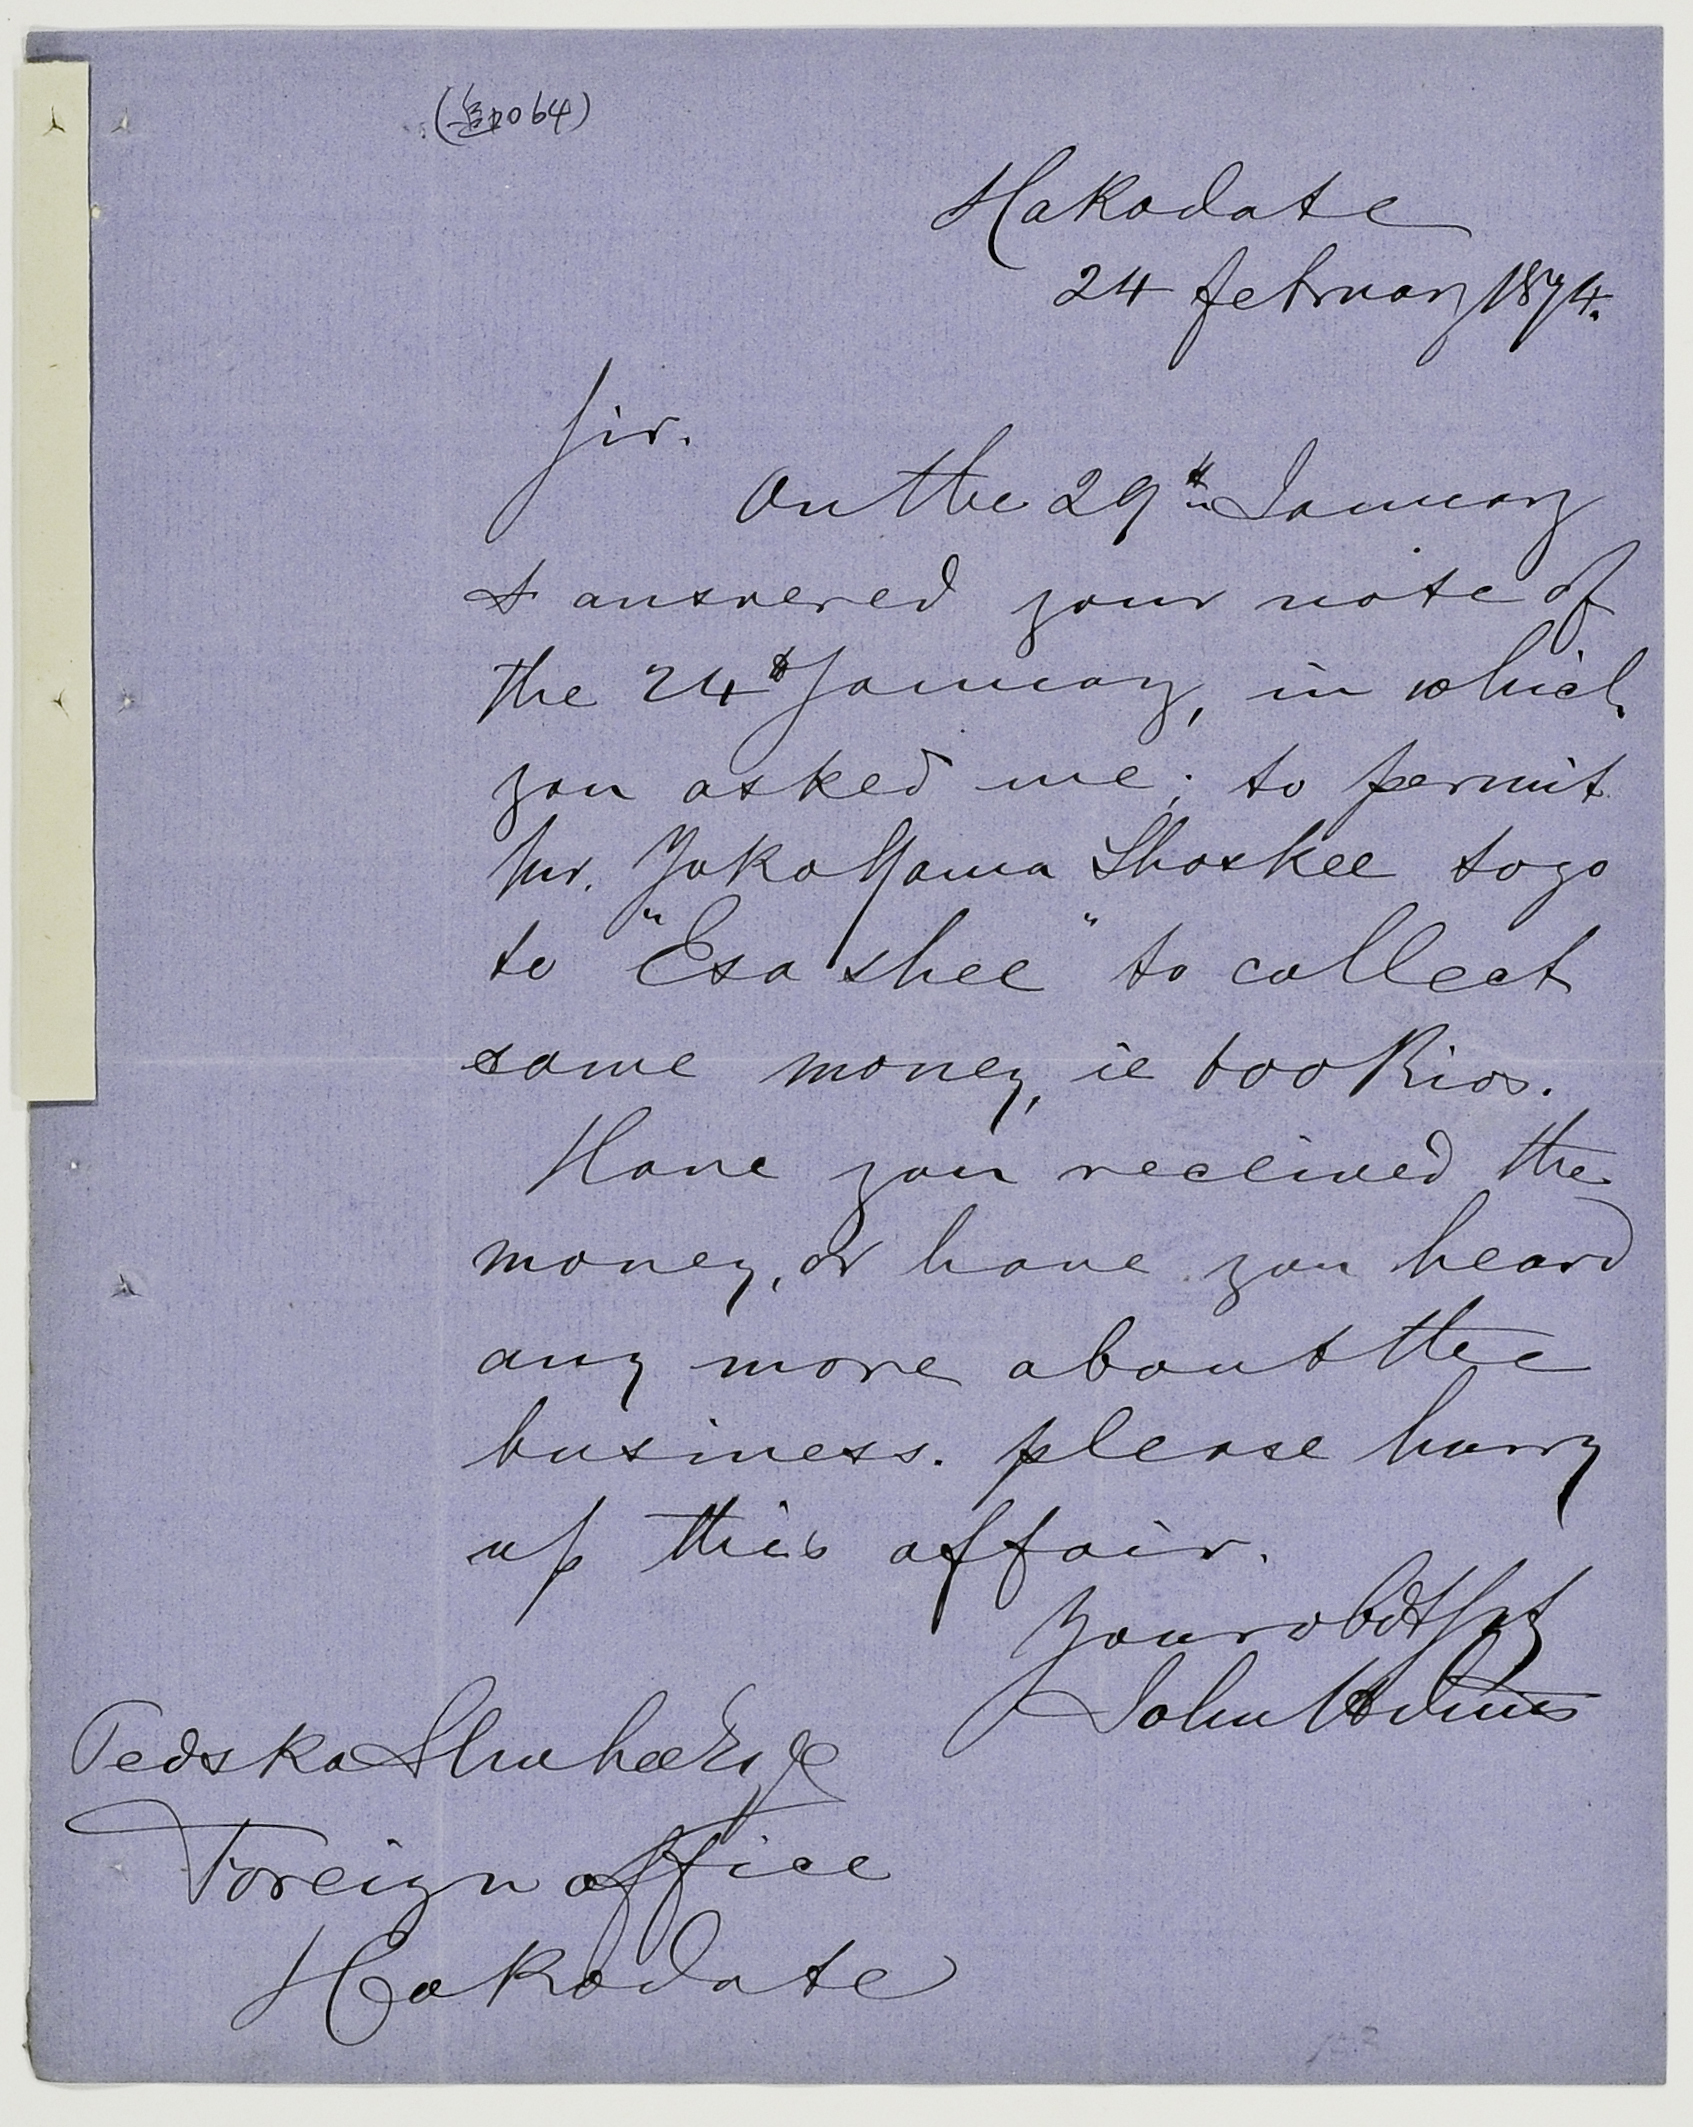 064)
Hakodate
24 february 1874.
Sir.
On the 29th January
I answered your note of
the 24th January, in which
you asked me; to permit
Mr. YokoYama Shoskee to go
to "Esashee" to collect
some money, ie 600 Rios.
Have you received the
money, or have you heard
any more about the
business. please hurry
up this affair.
Your obdt Svt
John
Foreign office
Hakodate